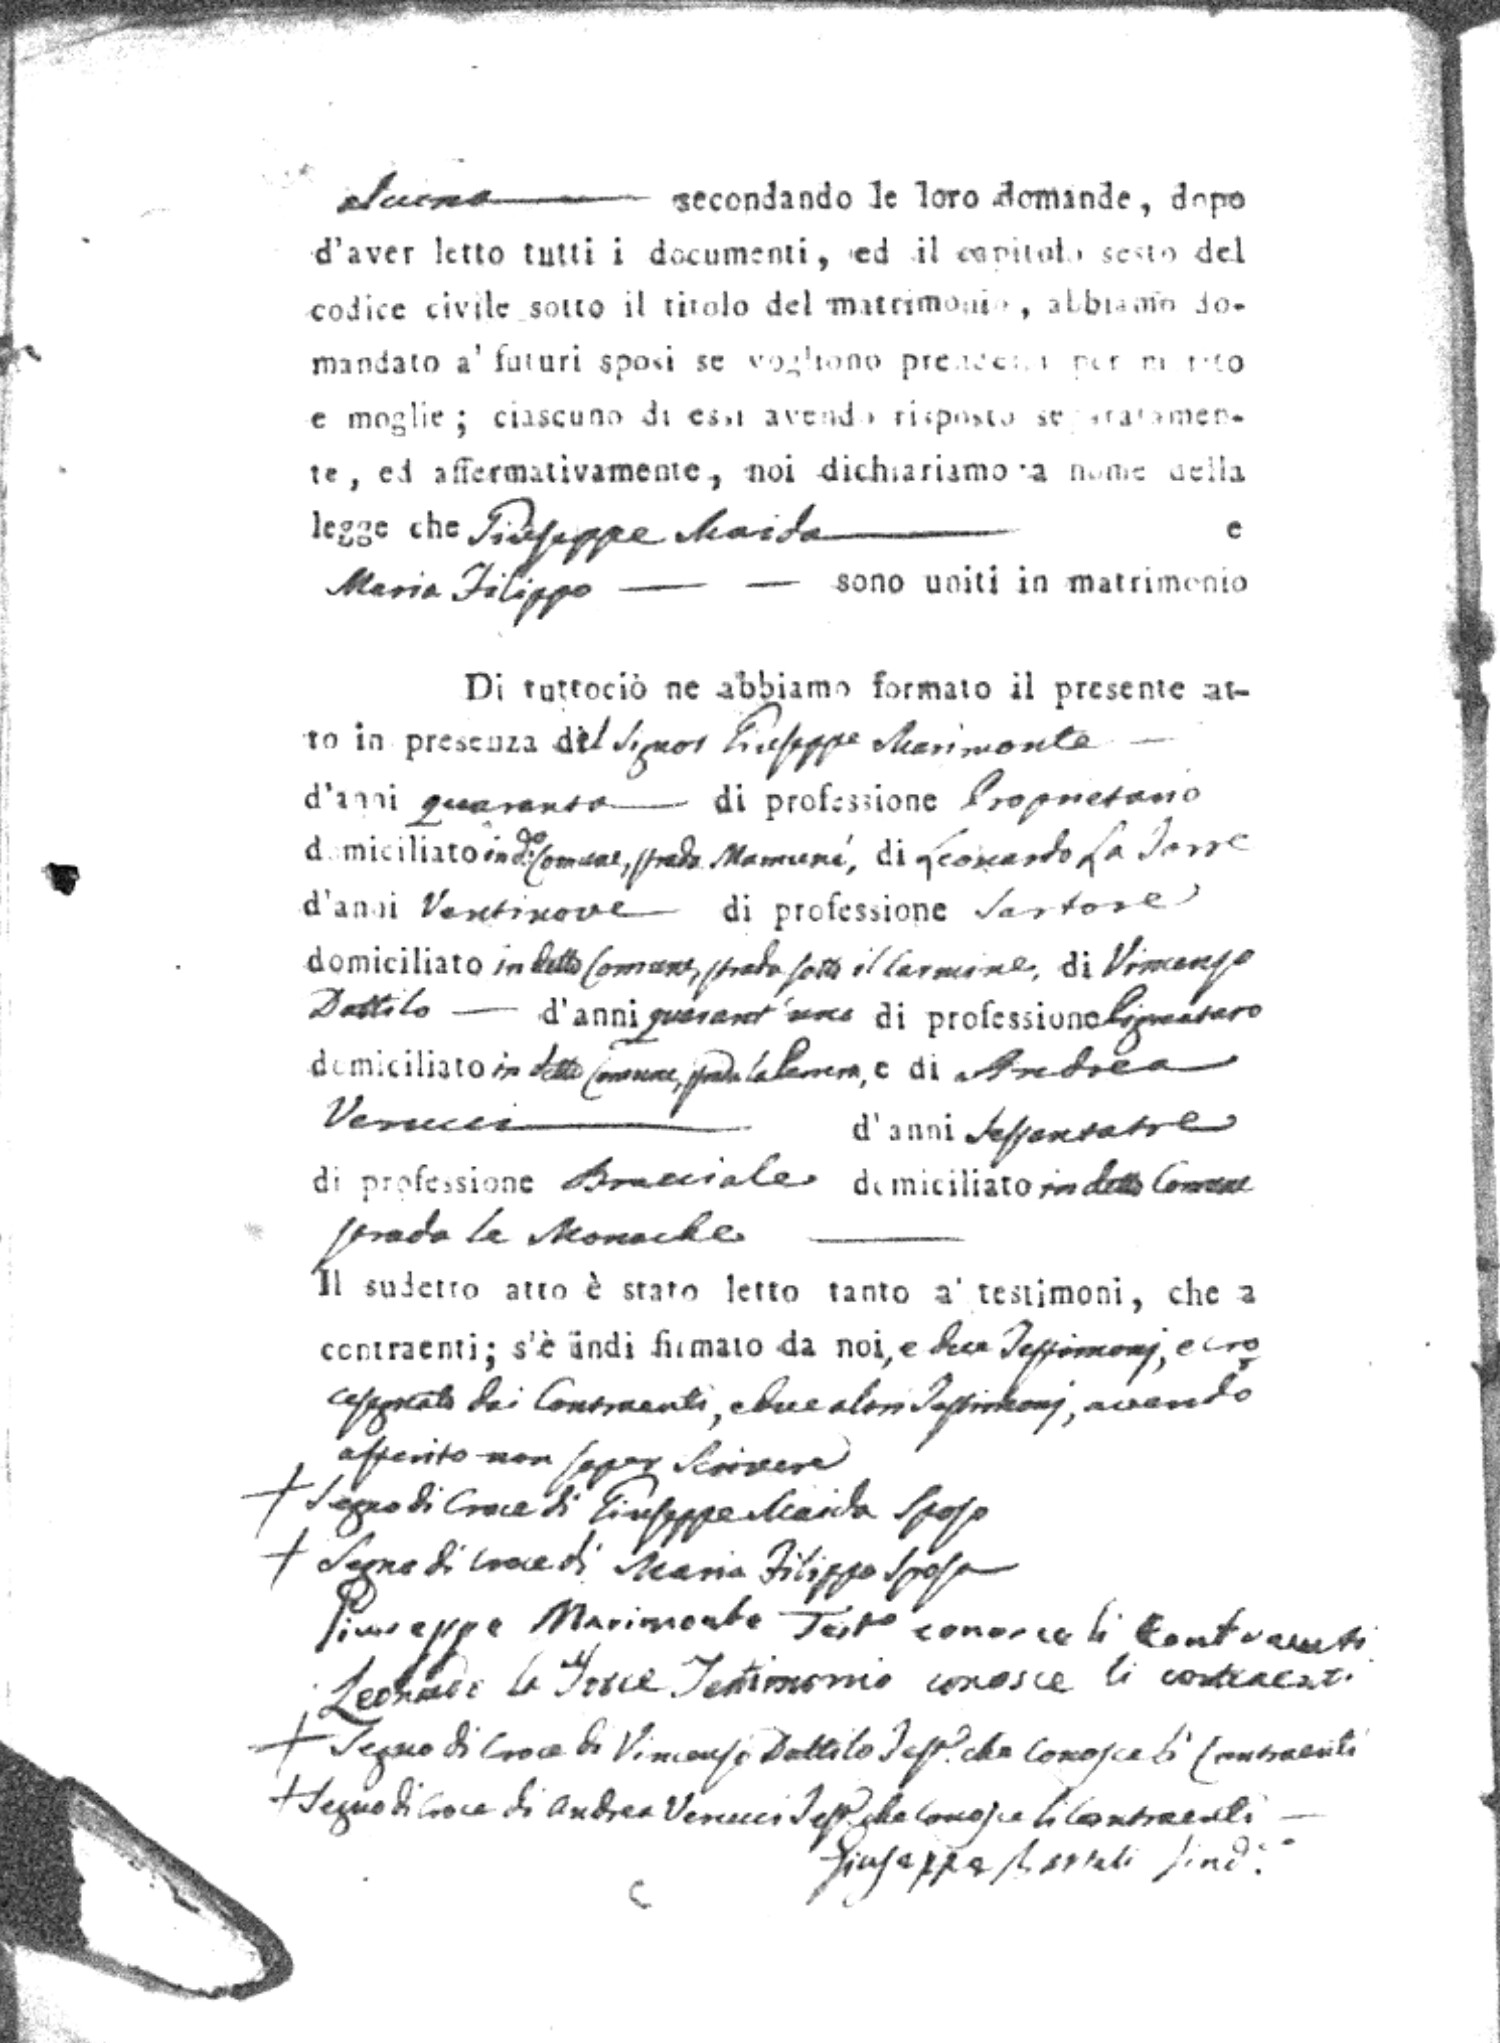 secondando le loro domande, dopo
d'aver letto tutti i documenti, ed il capitolo sesto del
codice civile sotto il titolo del matrimonio, abbiamo do-
mandato a' futuri sposi se vogliono prendersi per marito
e moglie; ciascuno di essi avendo risposto separatamen-
te, ed affermativamente, noi dichiariamo a nome della
legge che Giuseppe Maida e
Maria Filippo sono uniti in matrimonio
Di tuttociò ne abbiamo formato il presente at-
to in presenza del Signor Giuseppe Marimonte
d'anni quaranta di professione Proprietario
domiciliato in d:to Comune, strada Mamuni, di Leonardo La Torre
d'anni Ventinove di professione Sartore
domiciliato in detto Comune, strada sotto il Carmine, di Vincenzo
Dattilo d'anni quarant'uno di professione Pignataro
domiciliato in detto Comune, strada la, e di Andrea
Verucci d'anni Sessantatre
di professione Bracciale domiciliato in detto Comune
strada le Monache
Il sudetto atto è stato letto tanto a' testimoni, che a
contraenti; s'è indi firmato da noi, e due Testimonj, e cro
cesegnato dai Contraenti, e due altri Testimonj, avendo
asserito non saper Scrivere
+ Segno di Croce di Giuseppe Maida Sposo
+ Segno di Croce di Maria Filippo Sposa
Giuseppe Marimonte Test.o conosce li Contraenti
Leonardo la Torre Testimonio conosce li contraenti
+ Segno di Croce di Vincenzo Dattilo Test.o che conosce li Contraenti
+ Segno di Croce di Andrea Verucci Test.o che conosce li Contraenti
Giuseppe Sind.co